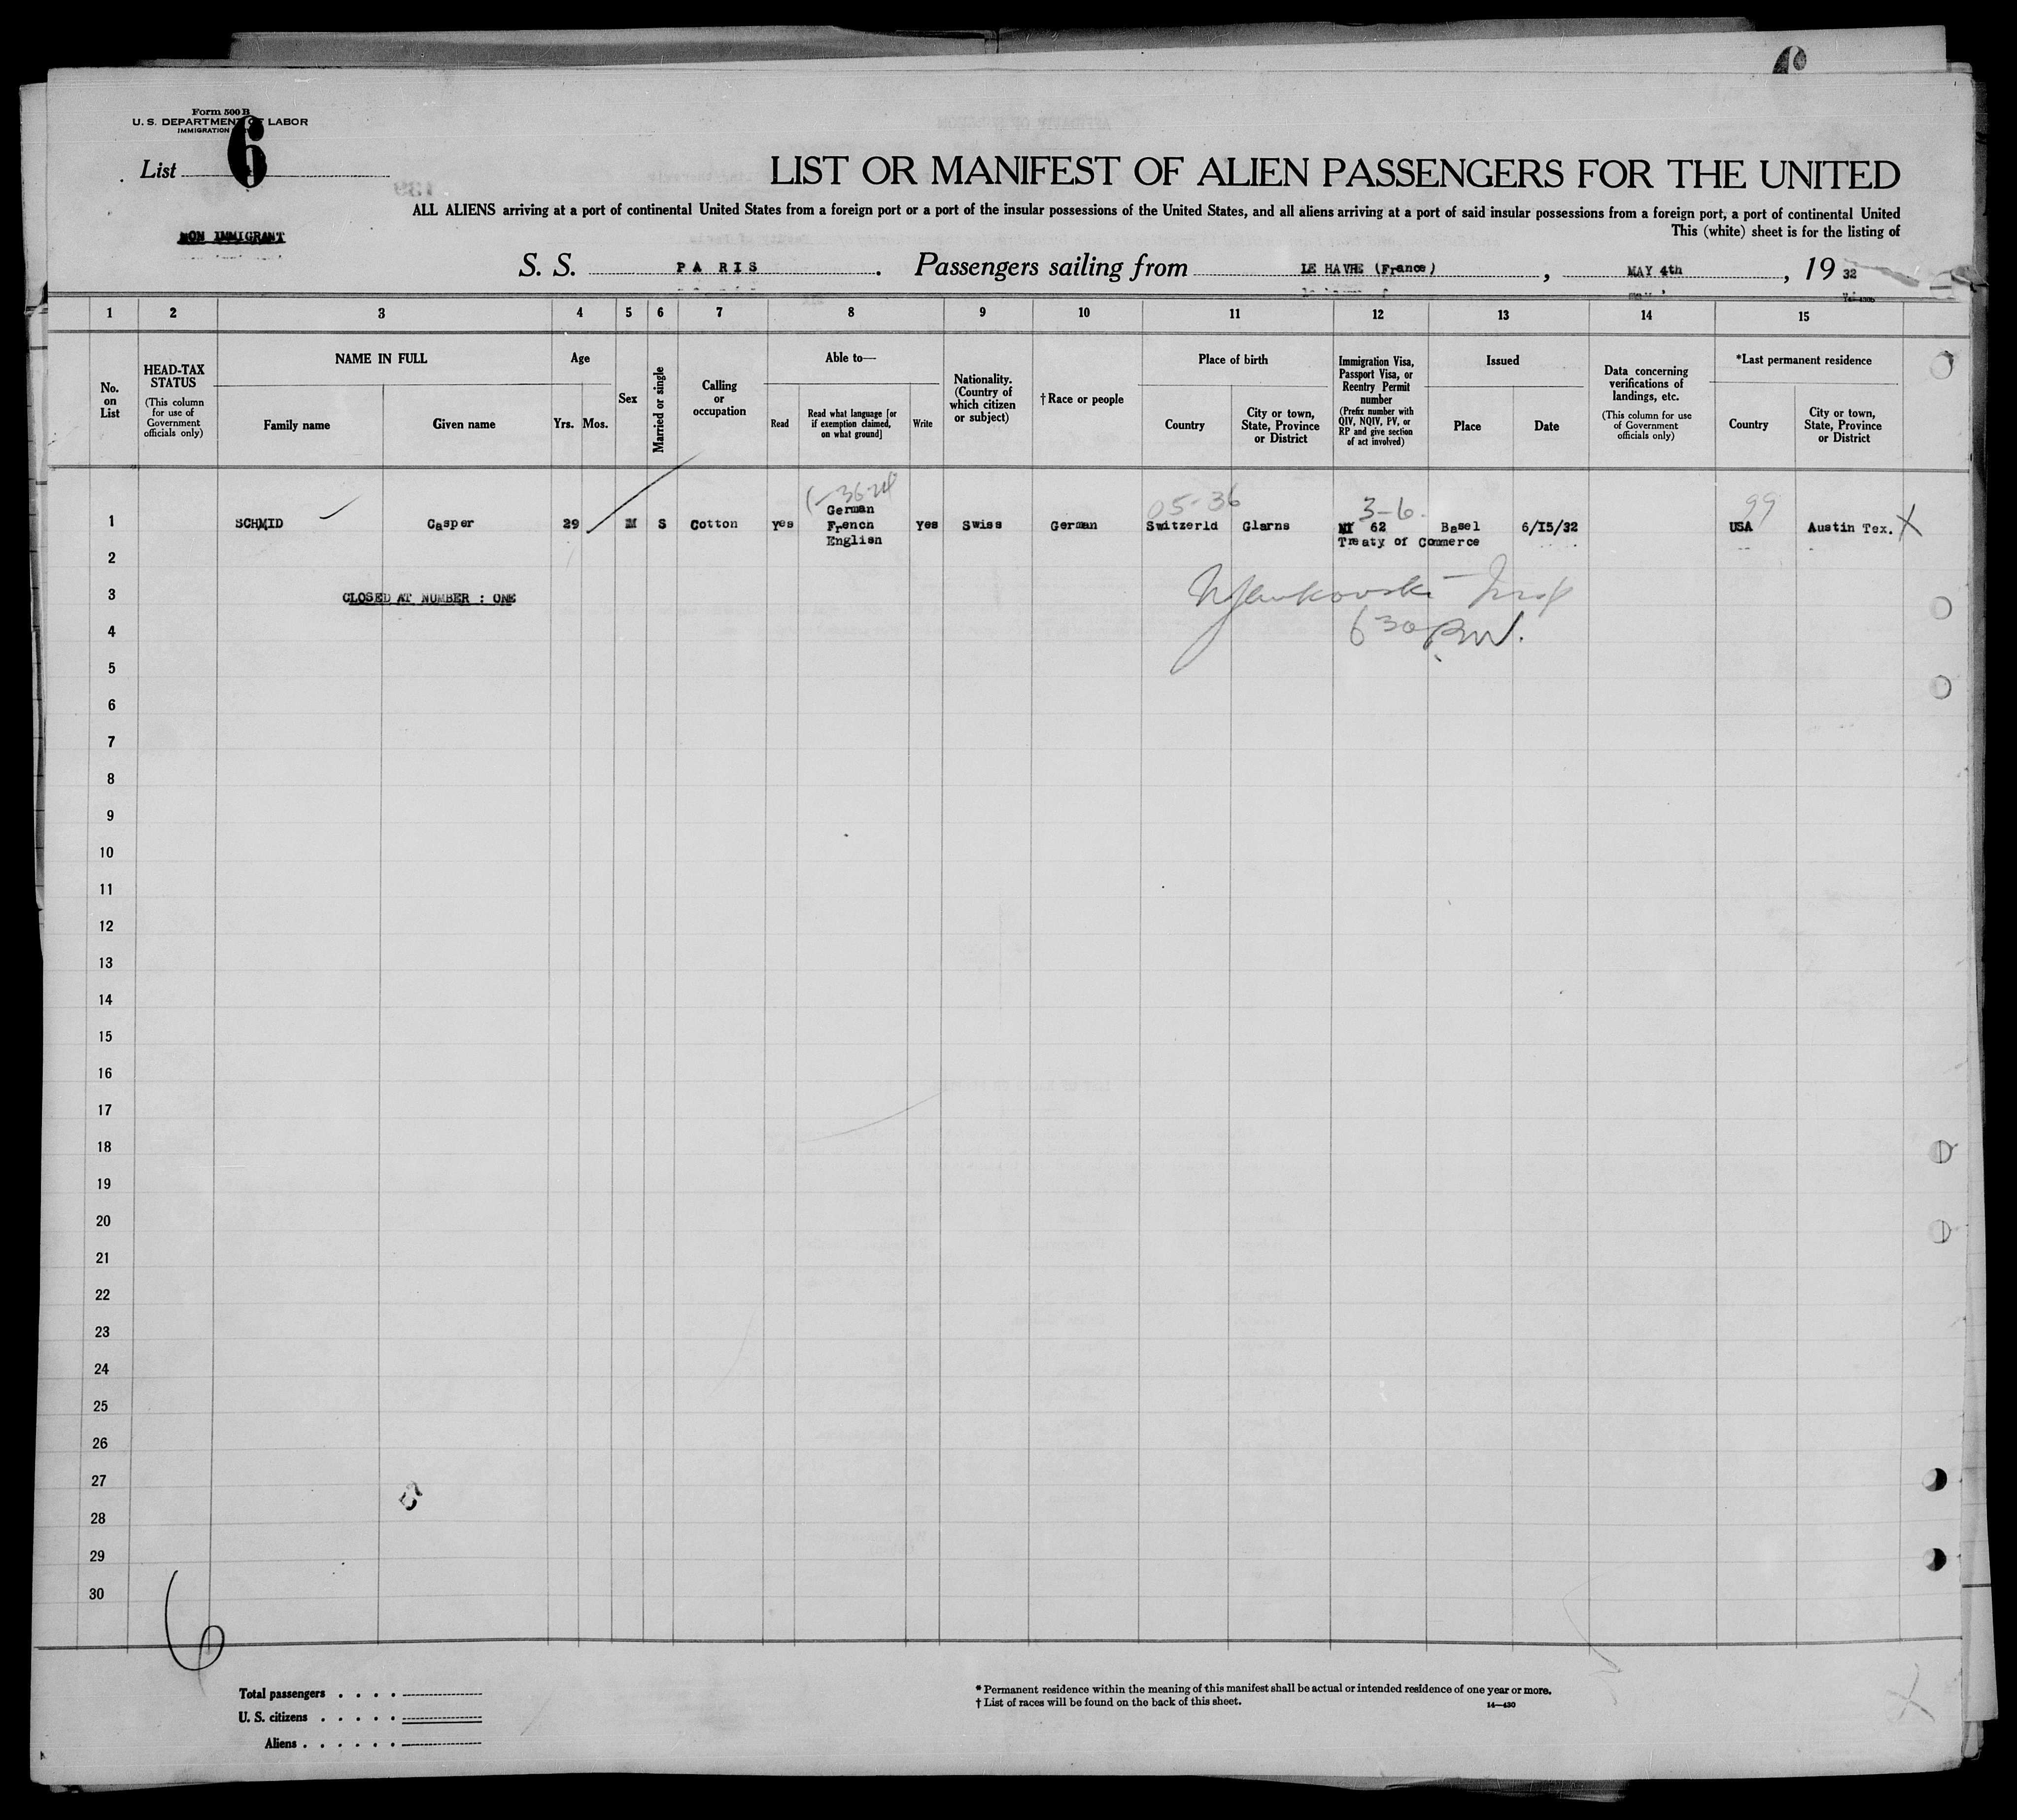 Form 500 B
U. S. DEPARTMENT OF LABOR
IMMIGRATION
List 6
NON IMMIGRANT
LIST OR MANIFEST OF ALIEN PASSENGERS FOR THE UNITED
ALL ALIENS arriving at a port of continental United States from a foreign port or a port of the insular possessions of the United States, and all aliens arriving at a port of said insular possessions from a foreign port, a port of continental United
This (white) sheet is for the listing of
S. S. PARIS. Passengers sailing from LE HAVRE (France), MAY 4th, 19 32
1 2 3 4 5 6 7 8 9 10 11 12 13 14 15
No. on List
HEAD-TAX STATUS (This column for use of Government officials only)
NAME IN FULL
Family name Given name
Age
Yrs. Mos.
Sex
Married or single
Calling or occupation
Able to—
Read
Read what language [or if exemption claimed, on what ground]
Write
Nationality. (Country of which citizen or subject)
†Race or people
Place of birth
Country
City or town, State, Province or District
Immigration Visa, Passport Visa, or Reentry Permit number (Prefix number with QIV, NQIV, PV, or RP and give section of act involved)
Issued
Place Date
Data concerning verifications of landings, etc. (This column for use of Government officials only)
*Last permanent residence
Country
City or town, State, Province or District
05-36 3-6 99
German
1 SCHMID Casper 29 M S Cotton Yes French Yes Swiss German Switzerld Glarns 62 Basel 6/I5/32 USA Austin Tex. X
English Treaty of Commerce
2
3 CLOSED AT NUMBER : ONE
4 6 30 P.M.
5
6
7
8
9
10
11
12
13
14
15
16
17
18
19
20
21
22
23
24
25
26
27
28
29
30
6
Total passengers
U. S. citizens
Aliens
* Permanent residence within the meaning of this manifest shall be actual or intended residence of one year or more.
† List of races will be found on the back of this sheet. 14—430